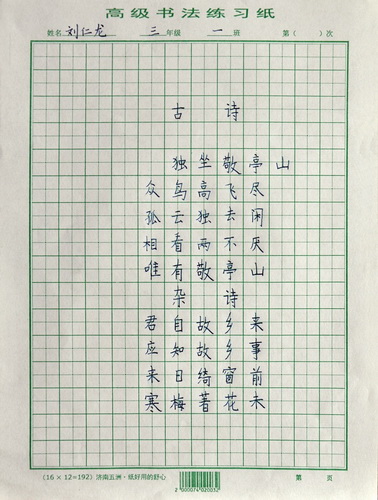 高级书法练习纸
姓名 刘仁龙 三 年级 一 班 第( )次
古 诗
独坐敬亭山
众鸟高飞尽
孤云独去闲
相看两不厌
唯有敬亭山
杂诗
君自故乡来
应知故乡事
来日绮窗前
寒梅著花未
(16×12=192) 济南五洲·纸好用的舒心
第 页
2000074020032